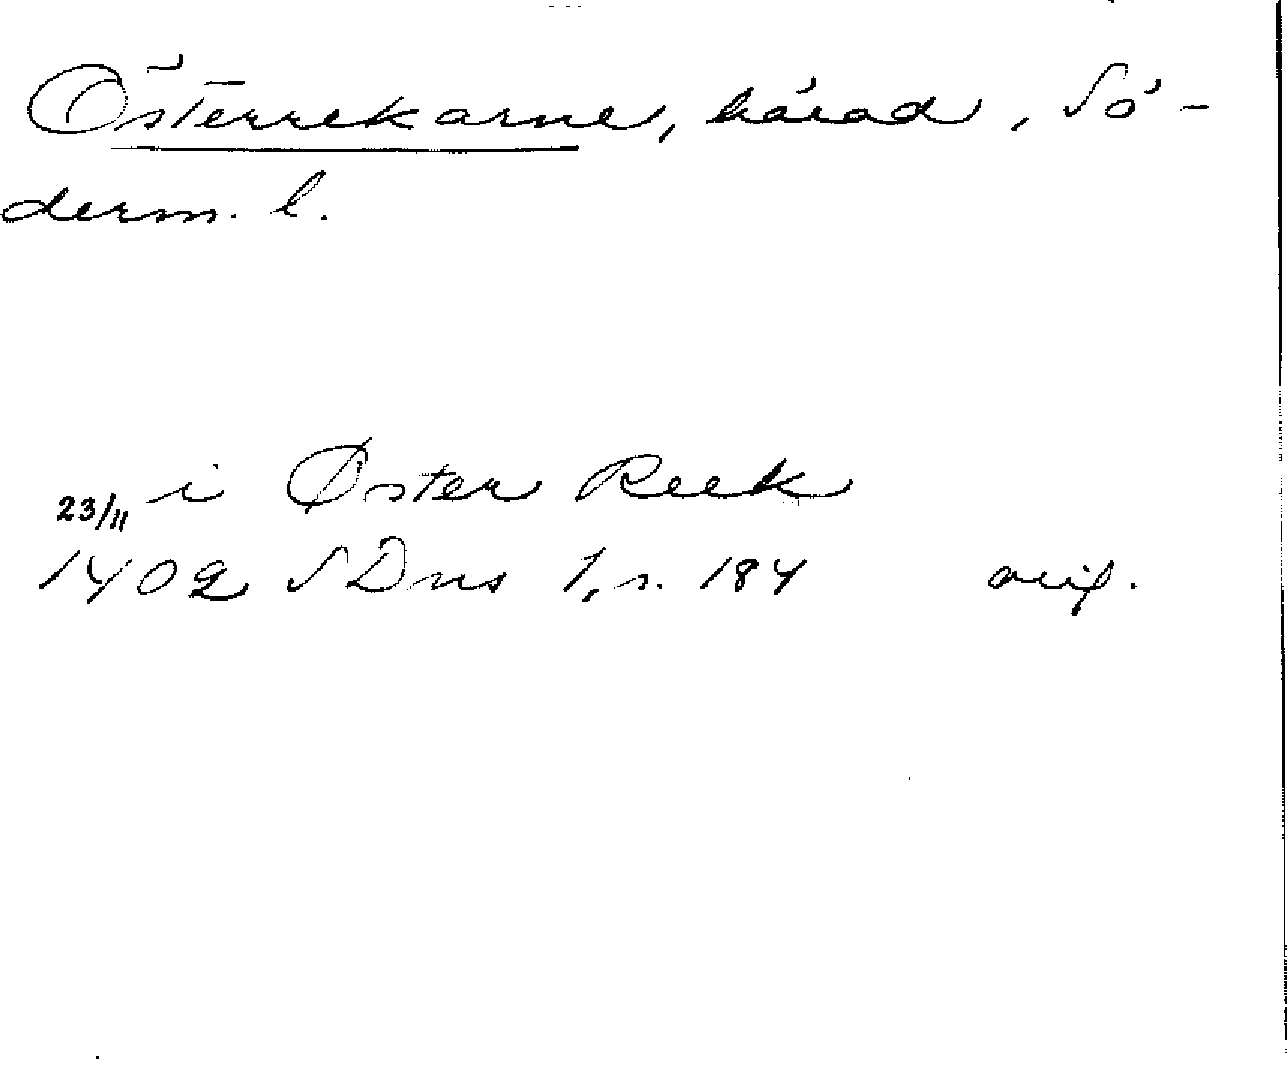 Österrekarne, härad, Sö-
derm. l.
i Øster Reek
23/11
1402 SDns 1, s. 184 orig.